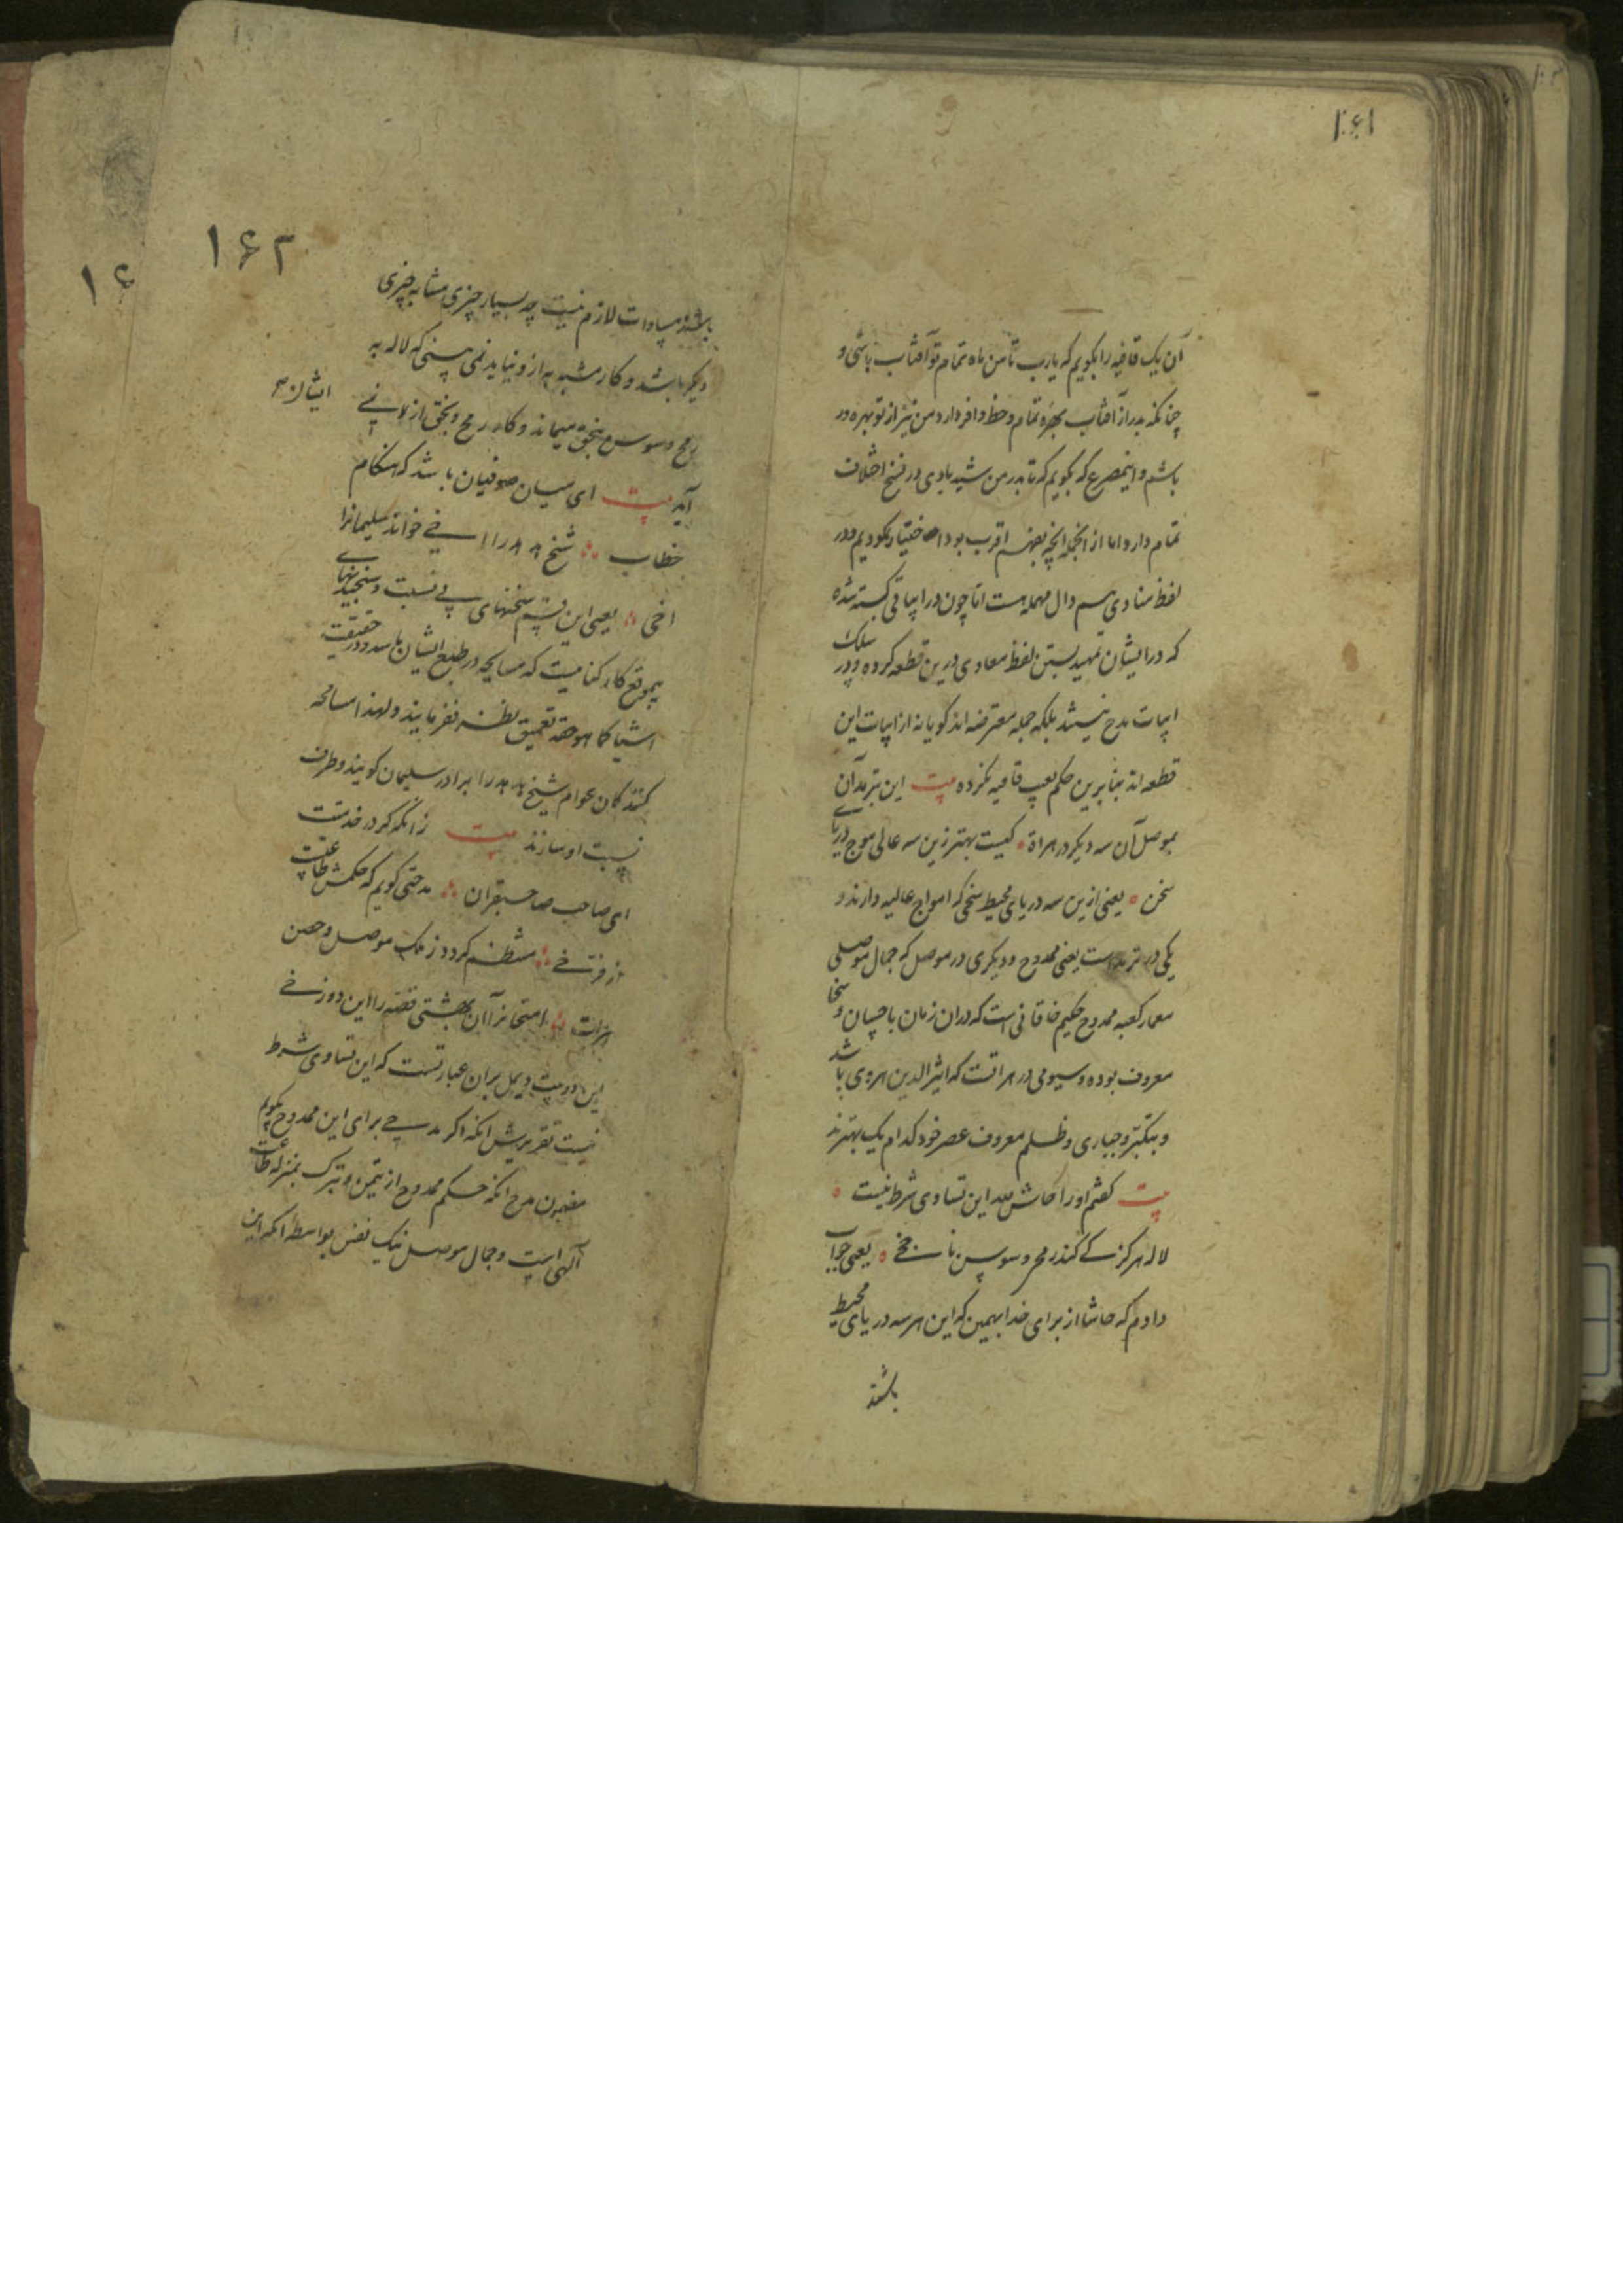 ۱۶۱
آن یک قافیه را بگویم که یارب تا من ماه تمام تو آفتاب باشی و
چنانکه بدر از آفتاب بهره تمام و حظ وافر دارد من نیز از تو بهره‌ور
باشم و اینمصرع که بگویم که تا بدر من شید بادی در نسخ اختلاف
تمام دارد اما از آنجمله آنچه بفهم اقرب بود اختیار نکردیم و در
لفظ منادی هم دال مهمله است اما چون در ابیاتی گسسته شده
که در ایشان تمهید بستن لفظ معادی درین قطعه کرده و در سلک
ابیات مدح نیستند بلکه جمله معترضه‌اند گویا نه از ابیات این
قطعه‌اند بنابرین حکم بعیب قافیه نکرده بیت این بترمد آن
بموصل آن سه دیگر در هراة کیست بهتر زین سه عالی موج دریای
سخن یعنی ازین سه دریای محیط سخی که امواج عالیه دارند و
یکی در ترمد است یعنی ممدوح و دیگری در موصل که جمال موصلی
معمار کعبه ممدوح حکیم خاقانی است که در ان زمان باحسان و سخا
معروف بوده و سیومی در هراتست که اثیرالدین هروی باشد
و بتکبر و جباری و ظلم معروف عصر خود کدام یک بهترند
بیت گفتم او را حاش لله این تساوی شرط نیست
لاله هرگز کی کند رمحی و سوسن ناجخی یعنی جواب
دادم که حاشا از برای خدا ببین که این هر سه دریای محیط
باشند
۱۶۲
باشند مساوات لازم نیست چه بسیار چیزی مشابه چیزی
دیگر باشد و کار مشبه به از و نیاید نمی بینی که لاله به
رمح و سوسن بنجق میماند و کار رمح و نجق از نمی
آید بیت ای میان صوفیان باشد که هنگام
خطاب شیخ را سفی خوانند سلیمانرا
اخی یعنی این قسم سخنهای بی نسبت و سنجیدنهای
بیموقع کار کنا میست که مسامحه در طبع ایشان باشد و در حقیقت
اشیا کما هو حقه تعمیق نظر نفرمایند و لهذا مسامحه
کنندکان عوام شیخ را برادر سلیمان گویند و طرف
نسبت او سازند بیت زانکه گر در خدمت
ای صاحب صاحبقران مدحتی گویم که حکمش طاعت
از فرسخی منتظم گردد ز ملک موصل و حصن
هرات امتحانرا آن بهشتی قصه را این دوزخی
این دو بیت دلیل بران عبارتست که این تساوی شرط
نیست تقریرش انکه اگر مدحی برای این ممدوح بگویم
مضمون مدح انکه حکم ممدوح از تیمن و تبرک بمنزله طاعت
آلهی است و جمال موصل نیک نفس بواسطه انکه این